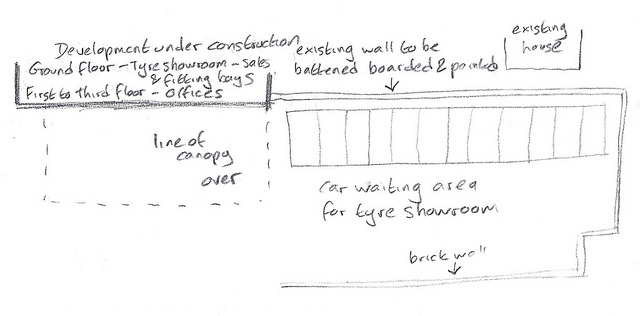 Development under construction
Ground floor - Tyre showroom - sales
& fitting bays
First to third floor - Offices
existing wall to be
battened boarded & painted
existing
house
line of
canopy
over
car waiting area
for tyre showroom
brick wall